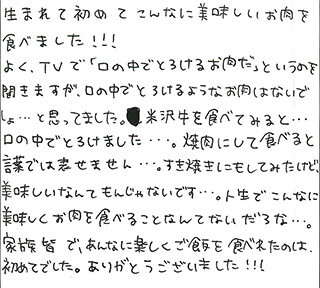 生まれて初めてこんなに美味しいお肉を
食べました!!!
よく、TVで「口の中でとろけるお肉だ」というのを
聞きますが、口の中でとろけるようなお肉はないで
しょ…と思ってました。米沢牛を食べてみると…
口の中でとろけました…。焼肉にして食べると
言葉では表せません…。すき焼きにもしてみたけど、
美味しいなんてもんじゃないです…。人生でこんなに
美味しくお肉を食べることなんてないだろな…。
家族皆で、あんなに楽しくご飯を食べれたのは、
初めてでした。ありがとうございました!!!